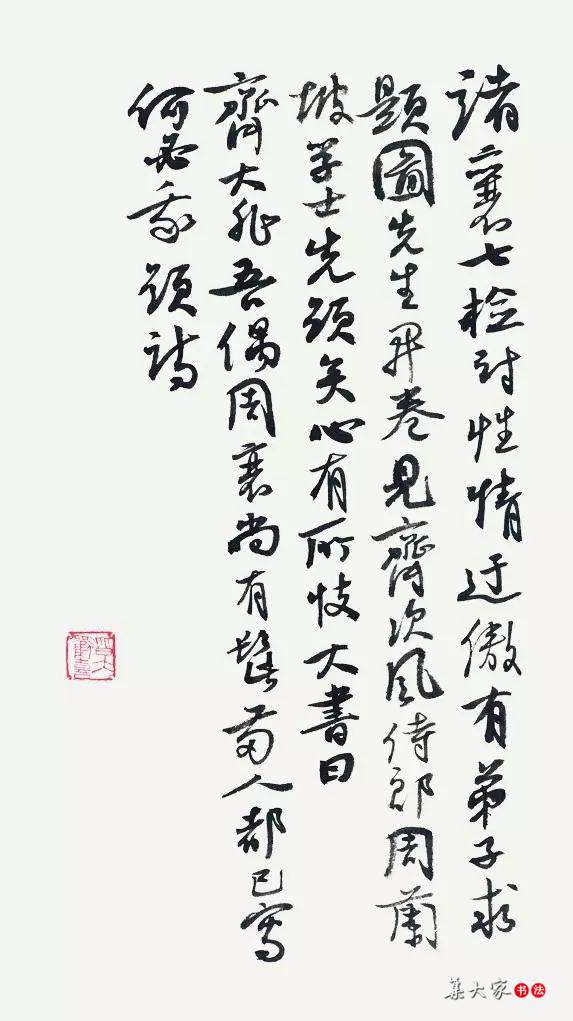 諸襄七檢討性情迂傲有弟子求
題圖先生開卷見齊次風侍郎周蘭
坡學士先題矣心有所忮大書曰
齊大非吾偶周衰尚有髭兩人都已寫
何必我題詩
集大家书法